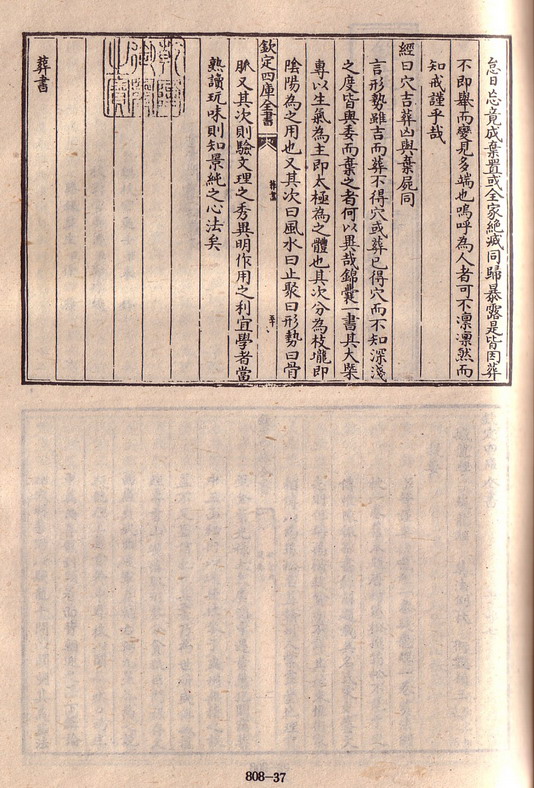 怠日忘竟成棄置或全家絶滅同歸暴露是皆因葬
不即舉而變見多端也嗚呼為人者可不凛凛然而
知戒謹乎哉
經曰穴吉葬凶與棄屍同
言形勢雖吉而葬不得穴或葬已得穴而不知深淺
之度皆與委而棄之者何以異哉錦囊一書其大槩
專以生氣為主即太極為之體也其次分為枝壠即
陰陽為之用也又其次曰風水曰止聚曰形勢曰骨
欽定四庫全書
葬書
脈又其次則驗文理之秀異明作用之利宜學者當
熟讀玩味則知景純之心法矣
葬書
808-37